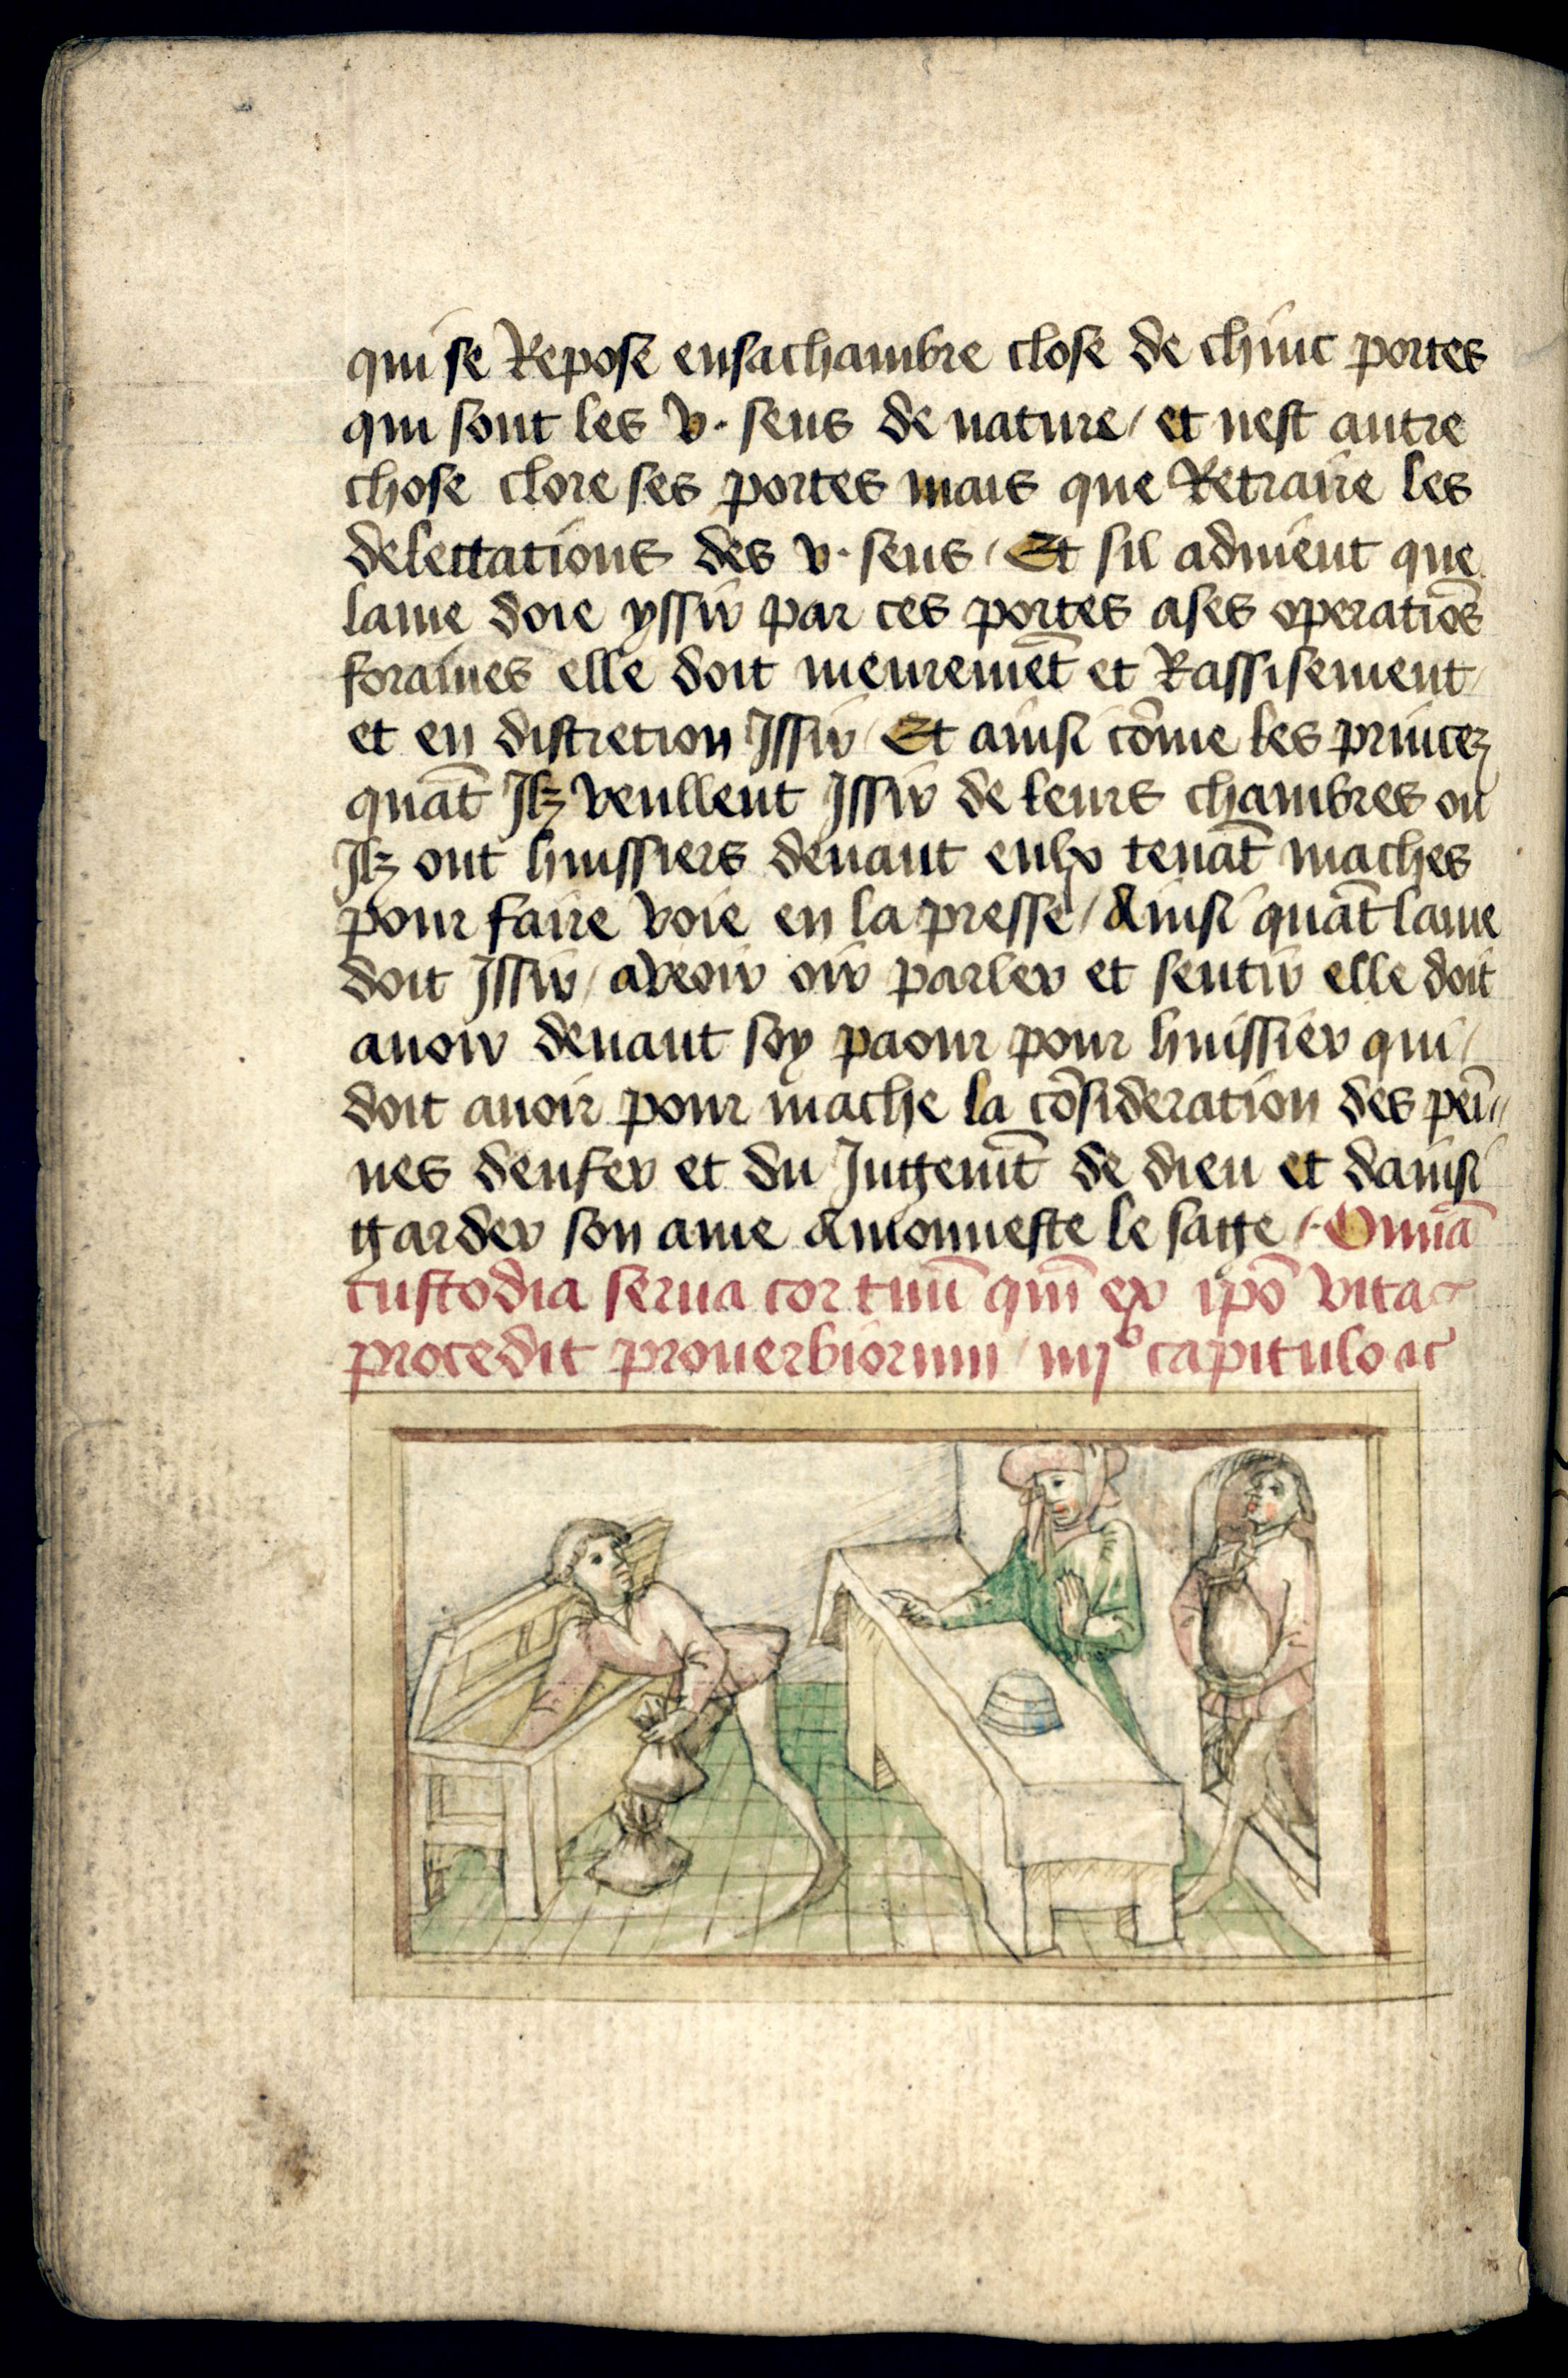 qui se Repose ensachambre close de chinc portes
qui sont les v· sens de nature / et nest autre
chose clore ses portes mais que Retraire les
delettations des v· sens / Et sil aduient que
lame doie yssir par ces portes ases operatiōs
foraines elle doit meuremēt et Rassisement /
et en discretion Issir / Et ainsi cōme les princez
quāt Ilz veullent Issir de leurs chambres ou
Ilz ont huissiers deuant eulx tenāt maches
pour faire voie en la presse / Ainsi quāt lame
doit Issir / aveoir oir parler et sentir elle doit
auoir deuant soy paour pour huissier qui /
doit auoir pour mache la cōsideration des pei̅//
nes denfer et du Juggem̅t de dieu et dainsi
ggarder son ame Amonneste le sagge /· Omn̅ā
custodia serua cor tuū qm̅ ex ip̅o vita
procedit prouerbiorum / iiijº capitulo ac